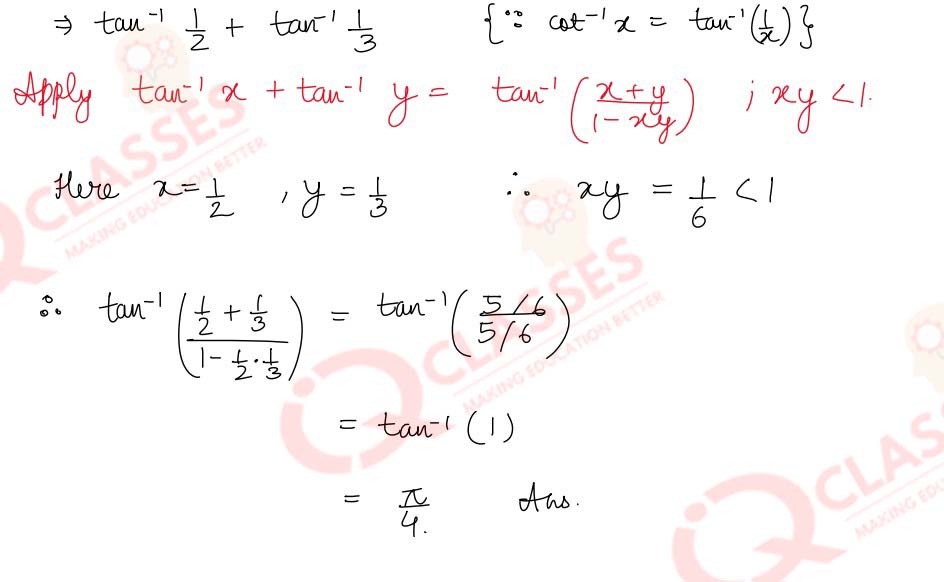 ⇒ tan⁻¹ 1/2 + tan⁻¹ 1/3 {∵ cot⁻¹ x = tan⁻¹(1/x)}
Apply tan⁻¹ x + tan⁻¹ y = tan⁻¹((x+y)/(1-xy)) ; xy < 1.
Here x = 1/2 , y = 1/3 ∴ xy = 1/6 < 1
∴ tan⁻¹((1/2 + 1/3)/(1 - 1/2 · 1/3)) = tan⁻¹((5/6)/(5/6))
= tan⁻¹(1)
= π/4. Ans.
IQ CLASSES
MAKING EDUCATION BETTER
IQ CLASSES
MAKING EDUCATION BETTER
IQ CLASSES
MAKING EDUCATION BETTER